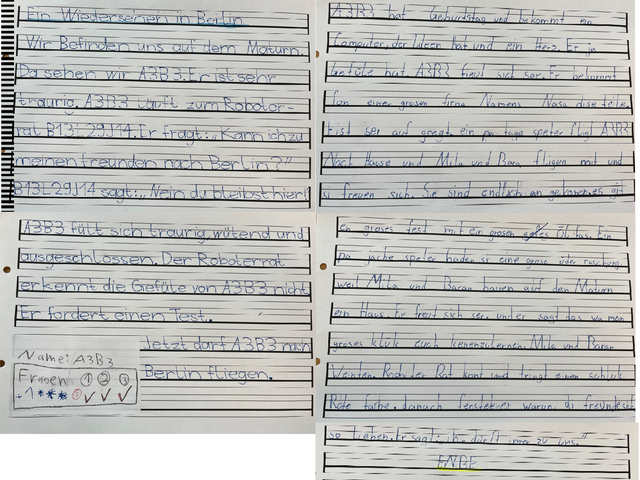 Ein Wiedersehen in Berlin.
Wir Befinden uns auf dem Maturn.
Da sehen wir A3B3. Er ist sehr
traurig. A3B3 läuft zum Roboter-
rat B13L29J14. Er fragt: „Kann ich zu
meinen freunden nach Berlin?"
B13L29J14 sagt: „Nein du bleibst hier!
A3B3 fült sich traurig, wütend und
ausgeschlossen. Der Roboterrat
erkennt die Gefüle von A3B3 nicht
Er fordert einen Test.
Name: A3B3
Fragen 1 2 3
+1 *** ✓ ✓ ✓
Jetzt darf A3B3 nach
Berlin fliegen.
A3B3 hat Geburtstag und bekommt ein
Computer, der Ideen hat und ein Herz. Er ja
Gefüle hat. A3B3 freut sich ser. Er bekommt
fon einer grosen firma Namens Nasa dise teile.
Er ist ser auf geregt. ein pa tage speter fligt A3B3
Nach Hause und Mila und Baran fligen mit und
si freuen sich. Sie sind endlich an gekomen. es git
en groses fest mit ein grosen Öl fas. Ein
pa jache speter haben si eine grose übe raschung.
weil Mila und Baran bauen auf den Maturn
ein Haus. Er freut sich ser. und er sagt das wa mein
groses klük euch kenenzulernen. Mila und Baran
Weinten. Roboter Rat komt und tringt einen schluk
Rote farbe. danach ferstet er warum di freunde sich
so lieben. Er sagt: „ih dürft imer zu uns."
ENDE